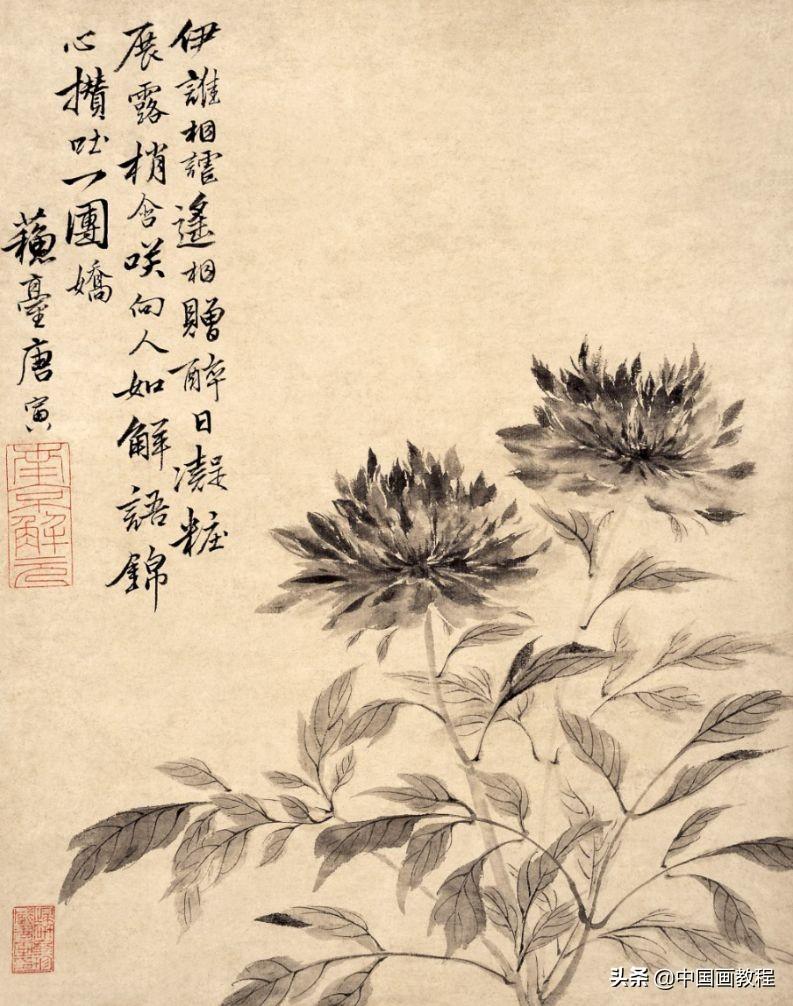 伊誰相謔遙相贈醉日凝粧
展露梢含咲向人如解語錦
心攢吐一團嬌
蘓臺唐寅
南京解元
头条 @中国画教程